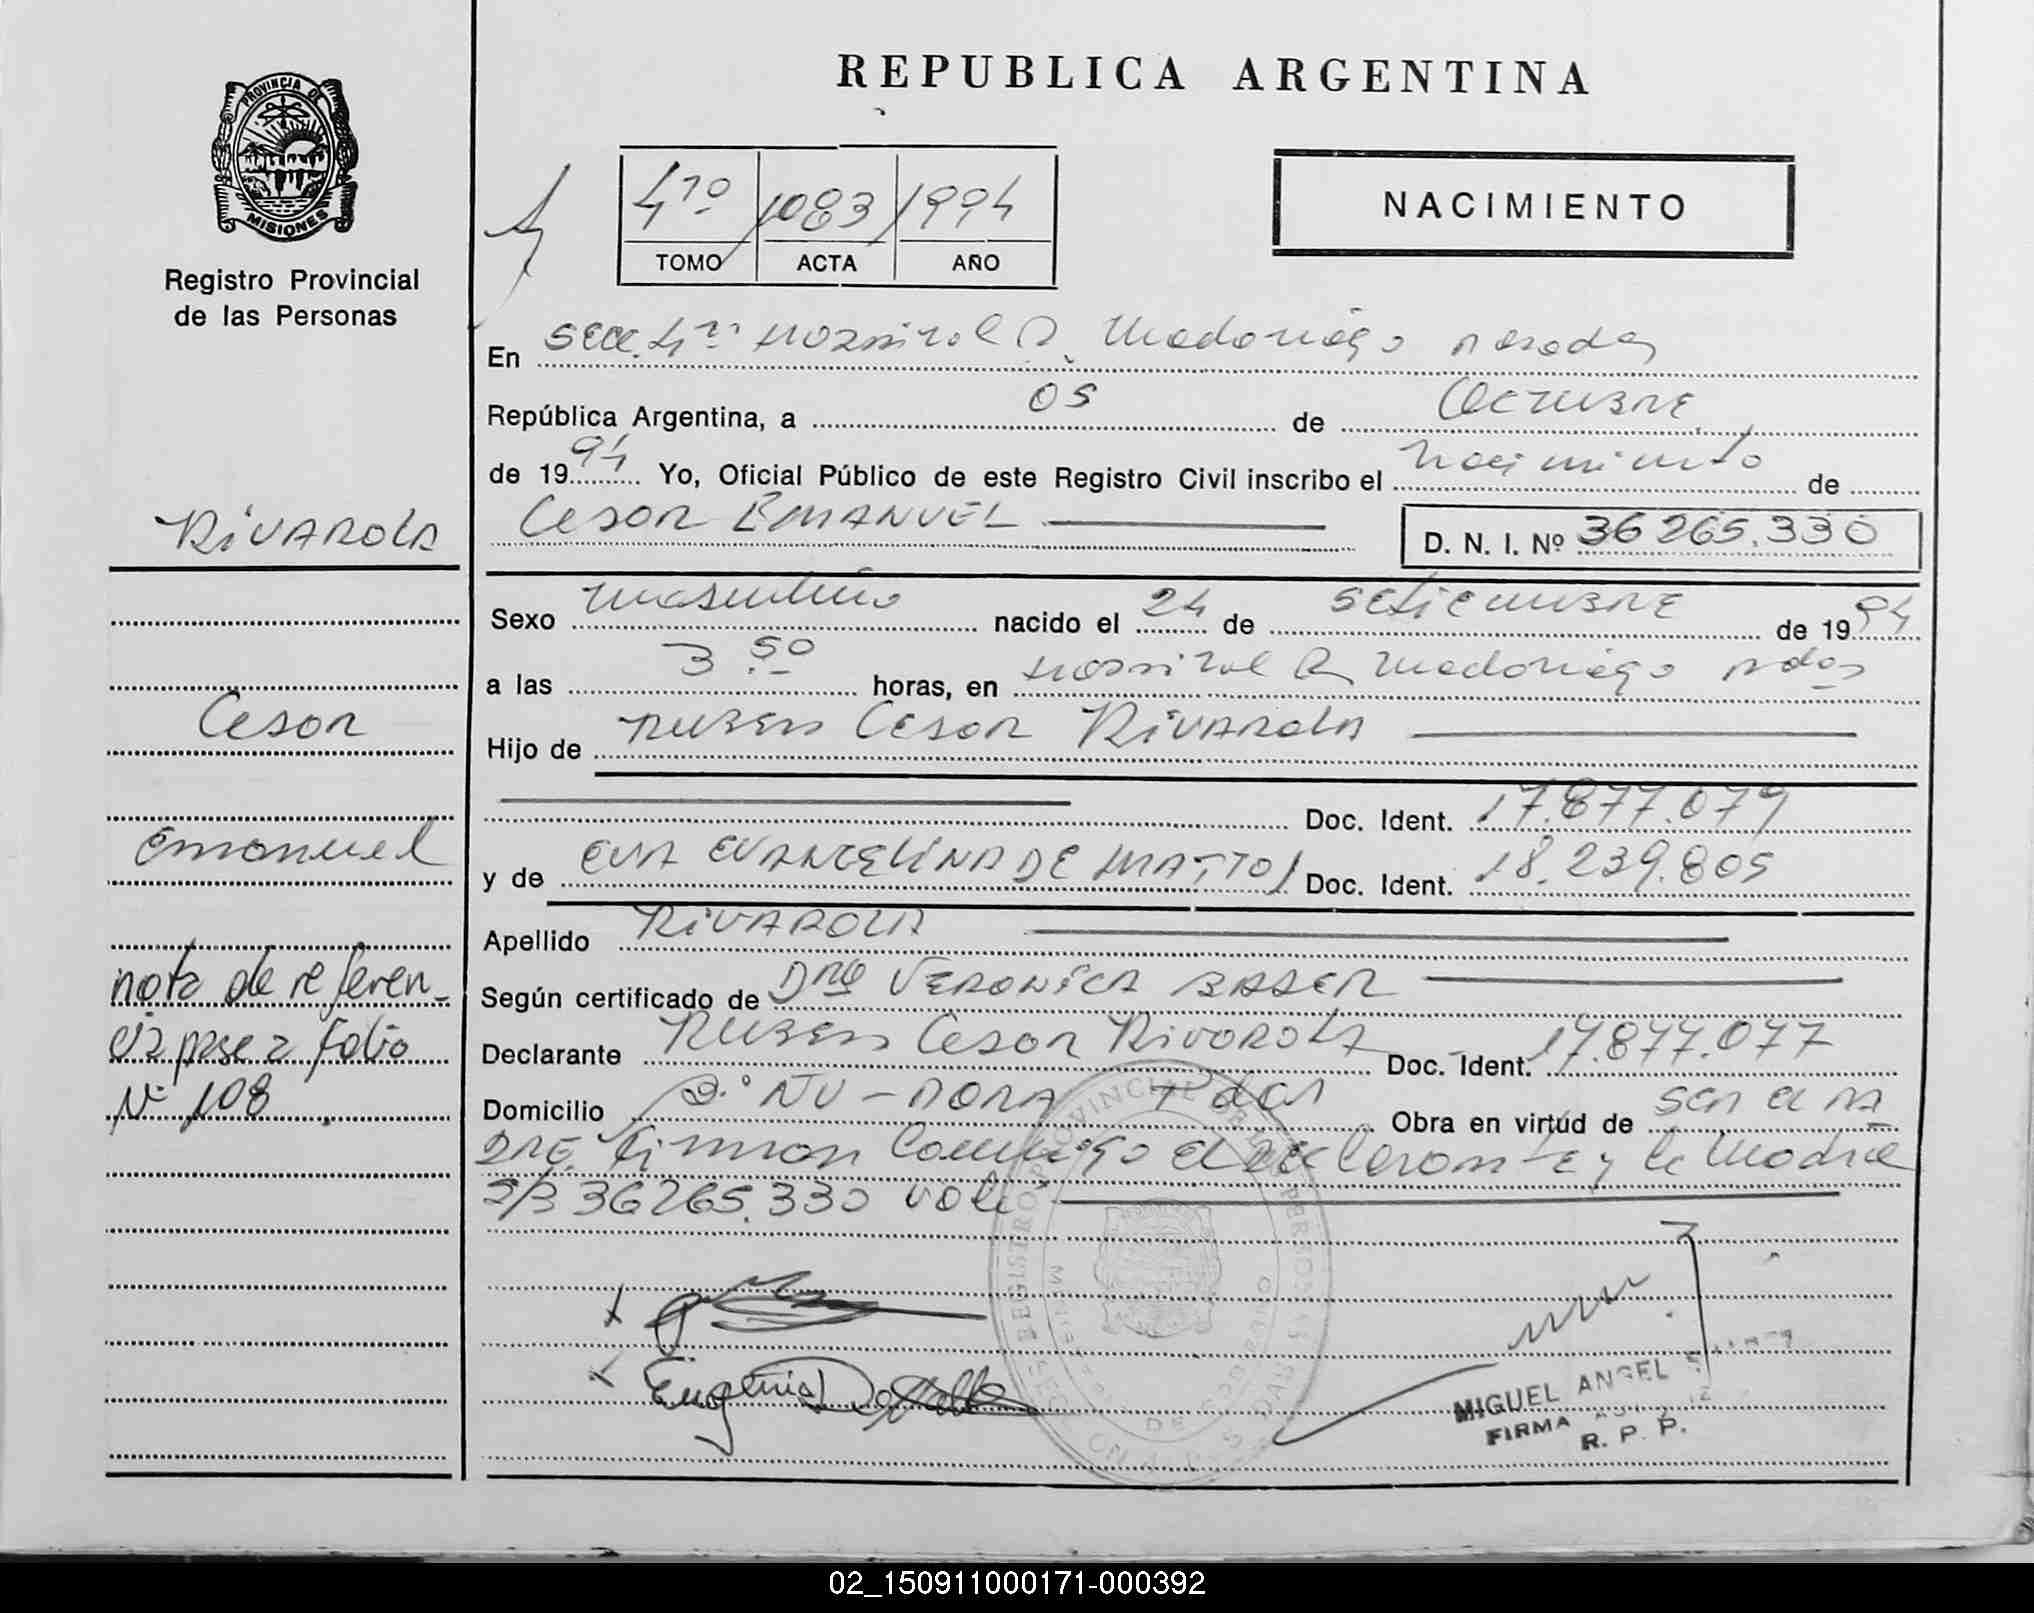 REPUBLICA ARGENTINA
PROVINCIA DE
MISIONES
Registro Provincial
de las Personas
4to 1083 1994
TOMO ACTA AÑO
NACIMIENTO
En Secc. 4ta Hospital R. Madariaga Posadas
República Argentina, a 05 de Octubre
de 1994 Yo, Oficial Público de este Registro Civil inscribo el nacimiento de
Cesar EMANUEL D. N. I. Nº 36265.330
Sexo masculino nacido el 24 de setiembre de 1994
a las 3 50 horas, en Hospital R. Madariaga Pdas
Hijo de Ruben Cesar Rivarola
Doc. Ident. 17.877.079
y de EVA EVANGELINA DE MATTOS Doc. Ident. 18.239.805
Apellido RIVAROLA
Según certificado de Dra VERONICA BADER
Declarante Ruben Cesar Rivarola Doc. Ident. 17.877.077
Domicilio Pdas Obra en virtud de ser el PA
DRE. Firman Conmigo el declarante y la Madre
S/B 36265.330 vale
RIVAROLA
Cesar
Emanuel
nota de referen-
cia pase a folio
Nº 108
REGISTRO PROVINCIAL DE LAS PERSONAS
MIGUEL ANGEL
FIRMA
R. P. P.
02_150911000171-000392